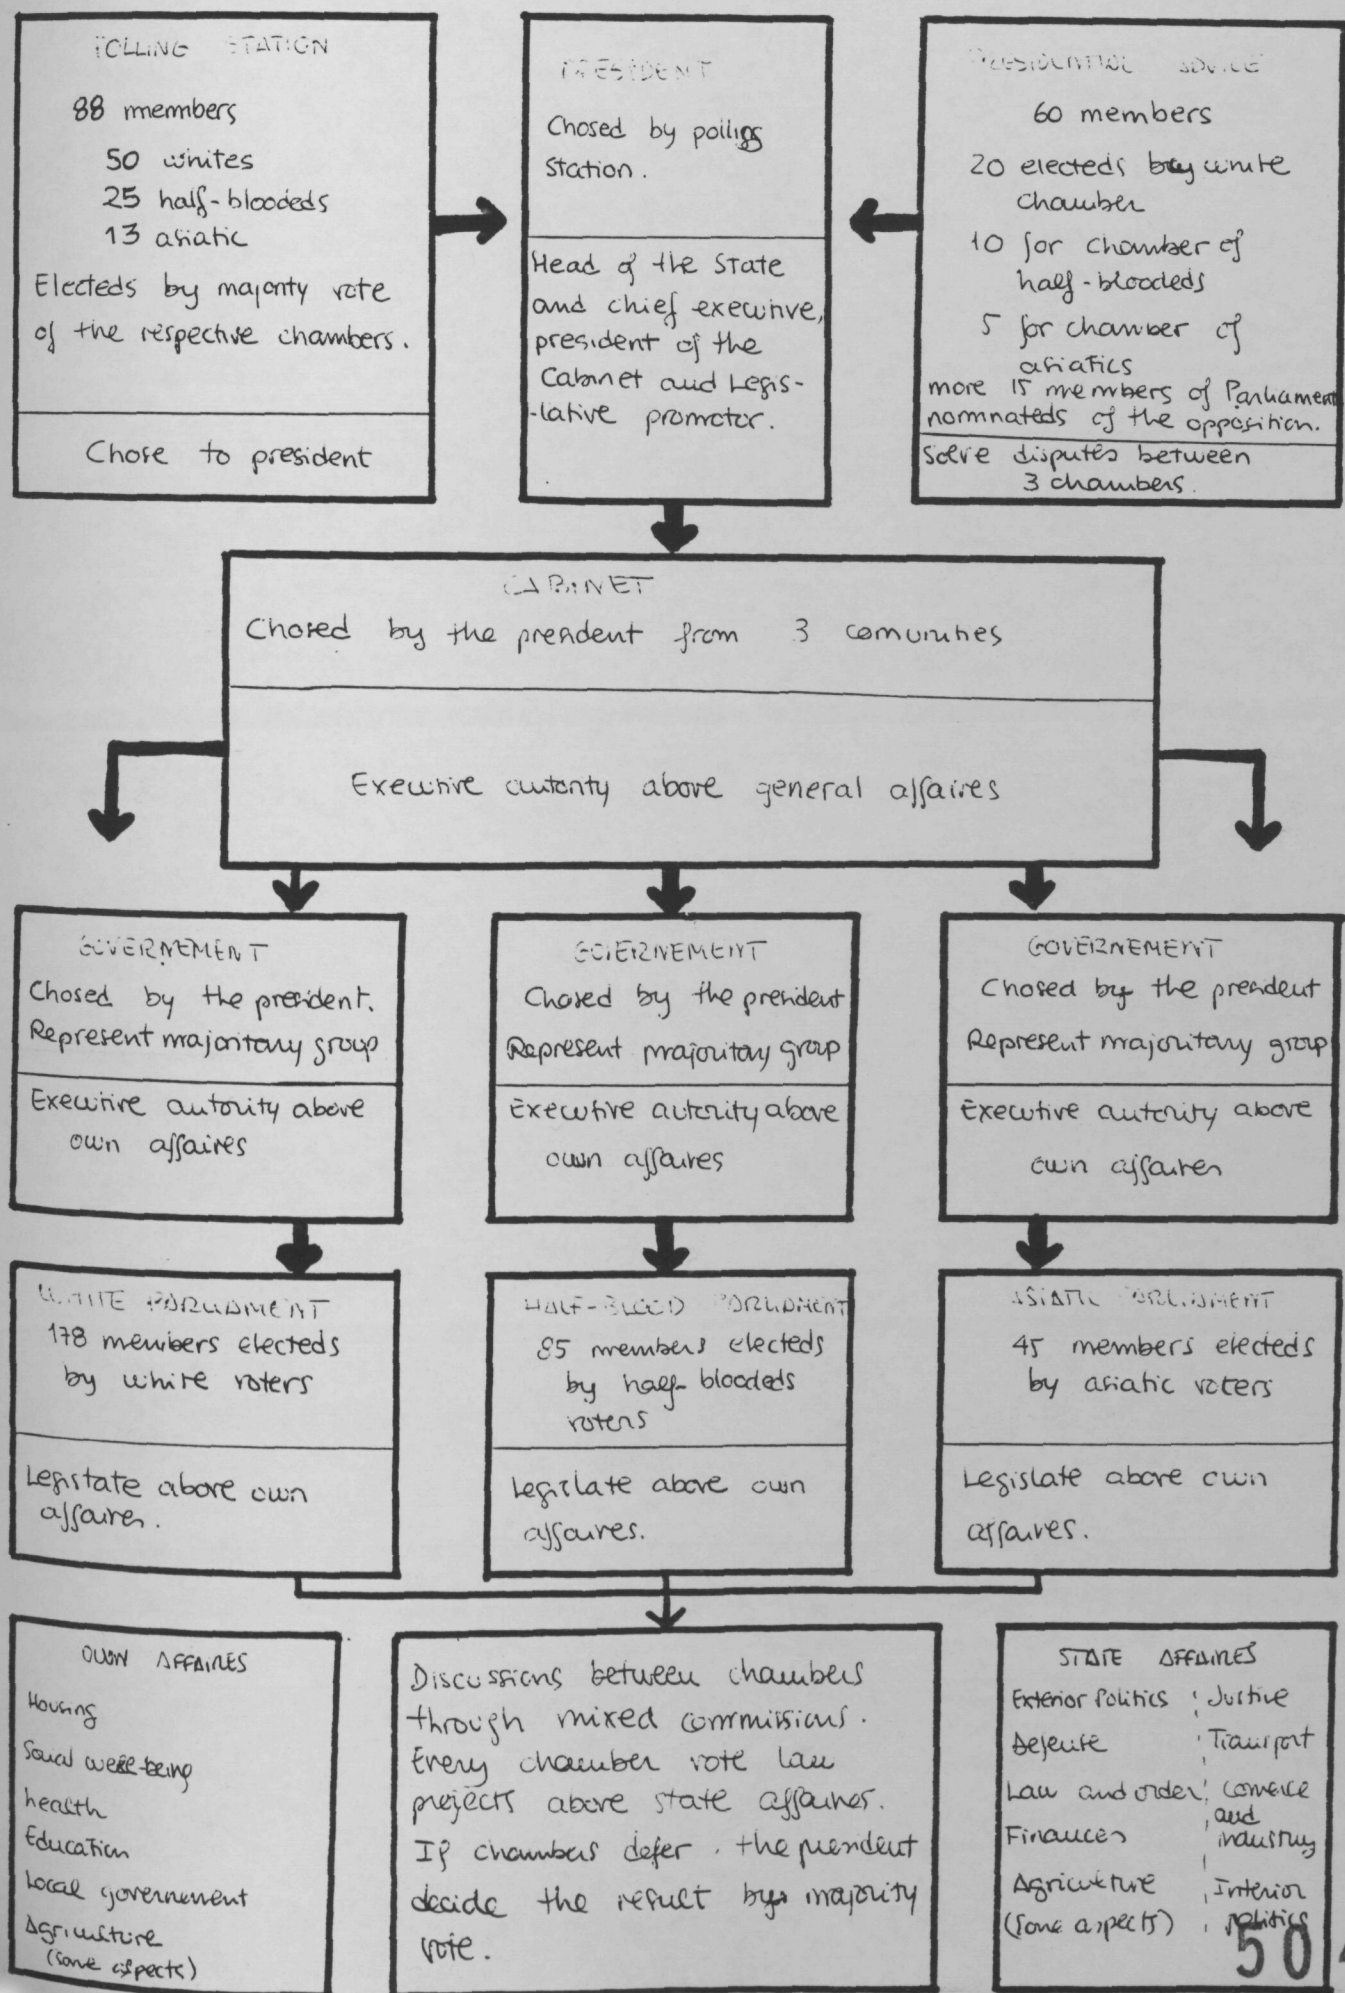 POLLING STATION
88 members
50 whites
25 half-blooded
13 asiatic
Electeds by majority vote
of the respective chambers.
Chose to president
PRESIDENT
Chosed by pollings
station.
Head of the State
and chief executive,
president of the
Cabinet and Legis-
-lative promotor.
PRESIDENTIAL ADVICE
60 members
20 electeds by white
chamber
10 for chamber of
half-blooded
5 for chamber of
asiatics
more 15 members of Parliament
nominateds of the opposition.
Solve disputes between
3 chambers.
CABINET
Chosed by the president from 3 comunities
Executive autority above general affaires
GOVERNEMENT
Chosed by the president.
Represent majoritary group
Executive autority above
own affaires
GOVERNEMENT
Chosed by the president
Represent majoritary group
Executive autority above
own affaires
GOVERNEMENT
Chosed by the president
Represent majoritary group
Executive autority above
own affaires
WHITE PARLIAMENT
178 members electeds
by white voters
Legislate above own
affaires.
HALF-BLOOD PARLIAMENT
85 members electeds
by half-blooded
voters
Legislate above own
affaires.
ASIATIC PARLIAMENT
45 members electeds
by asiatic voters
Legislate above own
affaires.
OWN AFFAIRES
Housing
Social well-being
health
Education
Local governement
Agriculture
(some aspects)
Discussions between chambers
through mixed commissions.
Every chamber vote law
projects above state affaires.
If chambers defer, the president
decide the result by majority
vote.
STATE AFFAIRES
Exterior Politics Justice
Defense Transport
Law and order Comerce
and
Finances industry
Agriculture Interior
(some aspects) politics
50